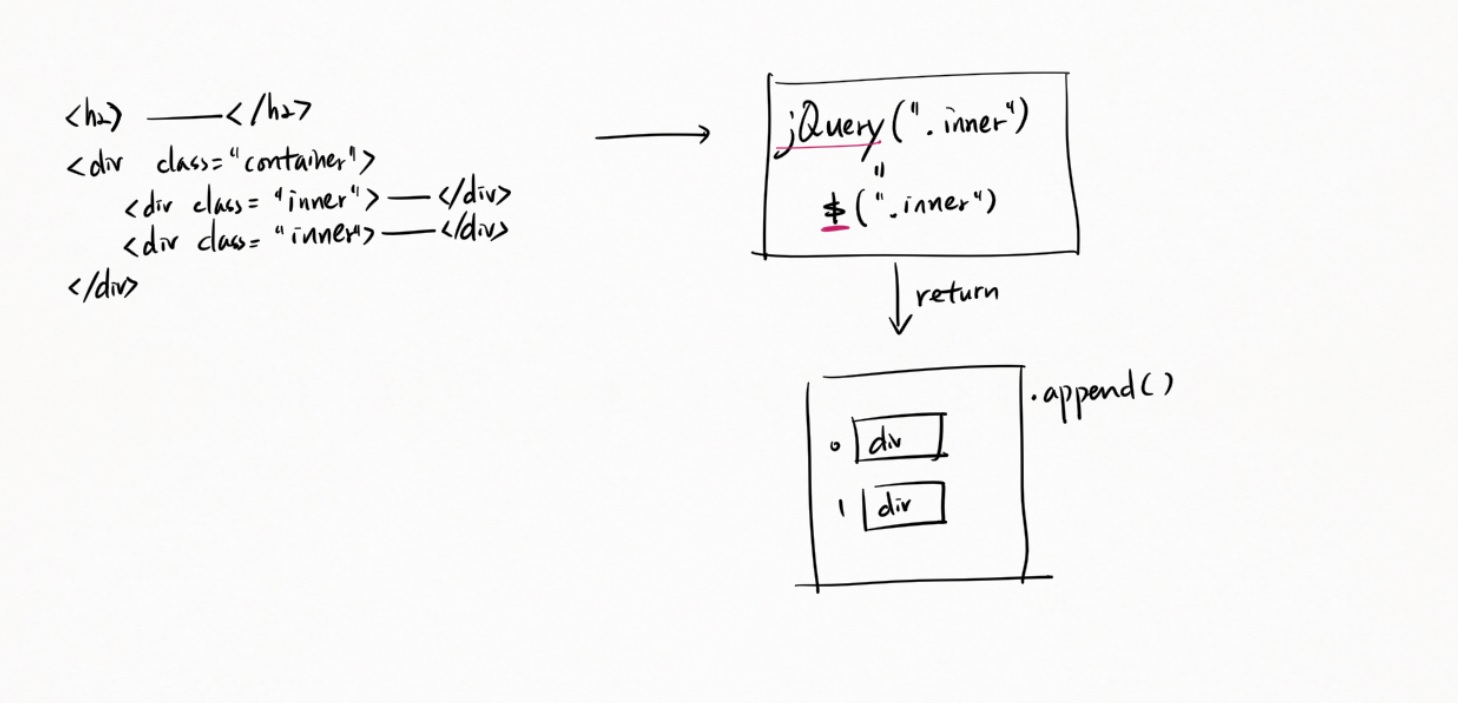 <h2> ——</h2>
<div class="container">
<div class="inner">—</div>
<div class="inner">—</div>
</div>
jQuery(".inner")
"
$(".inner")
return
.append()
0 div
1 div